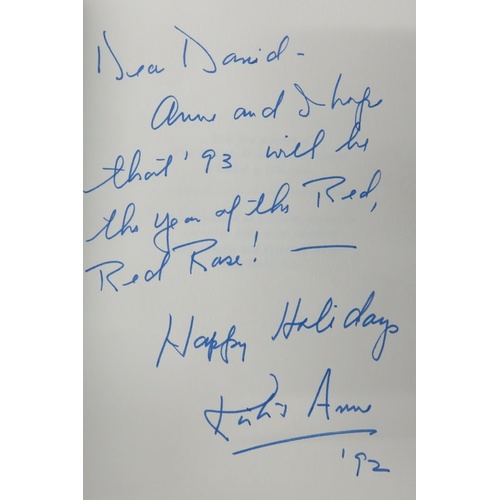 Dear David -
Anne and I hope
that '93 will be
the year of the Red,
Red Rose! —
Happy Holidays
Anne
'92